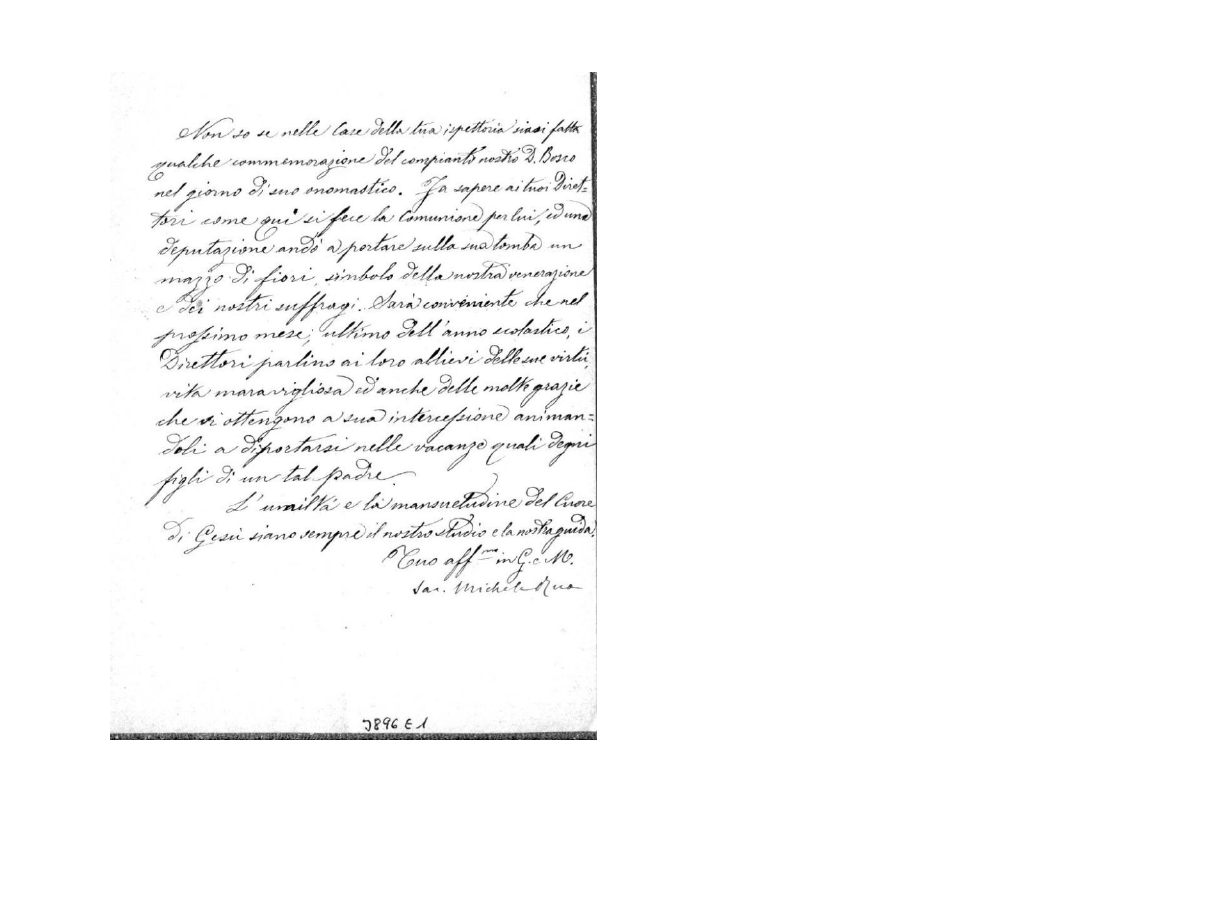 Non so se nelle Case della tua ispettoria siasi fatta
qualche commemorazione del compianto nostro D. Bosco
nel giorno di suo onomastico. Fa sapere ai tuoi Diret=
tori come qui si fece la Comunione per lui, ed una
deputazione andò a portare sulla sua tomba un
mazzo di fiori, simbolo della nostra venerazione
e dei nostri suffragi. Sarà conveniente che nel
prossimo mese, ultimo dell'anno scolastico, i
Direttori parlino ai loro allievi delle sue virtù,
vita maravigliosa ed anche delle molte grazie
che si ottengono a sua intercessione animan=
doli a diportarsi nelle vacanze quali degni
figli di un tal padre.
L'umiltà e la mansuetudine del Cuore
di Gesù siano sempre il nostro studio e la nostra guida.
Tuo aff.mo in G. e M.
Sac. Michele Rua
3896 E 1